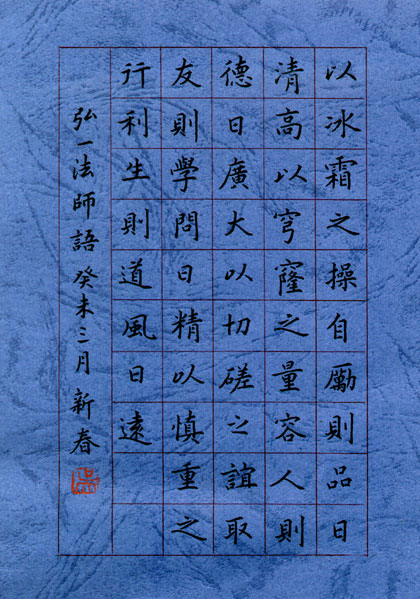 以冰霜之操自勵則品日
清高以穹窿之量容人則
德日廣大以切磋之誼取
友則學問日精以慎重之
行利生則道風日遠
弘一法師語 癸未三月 新春